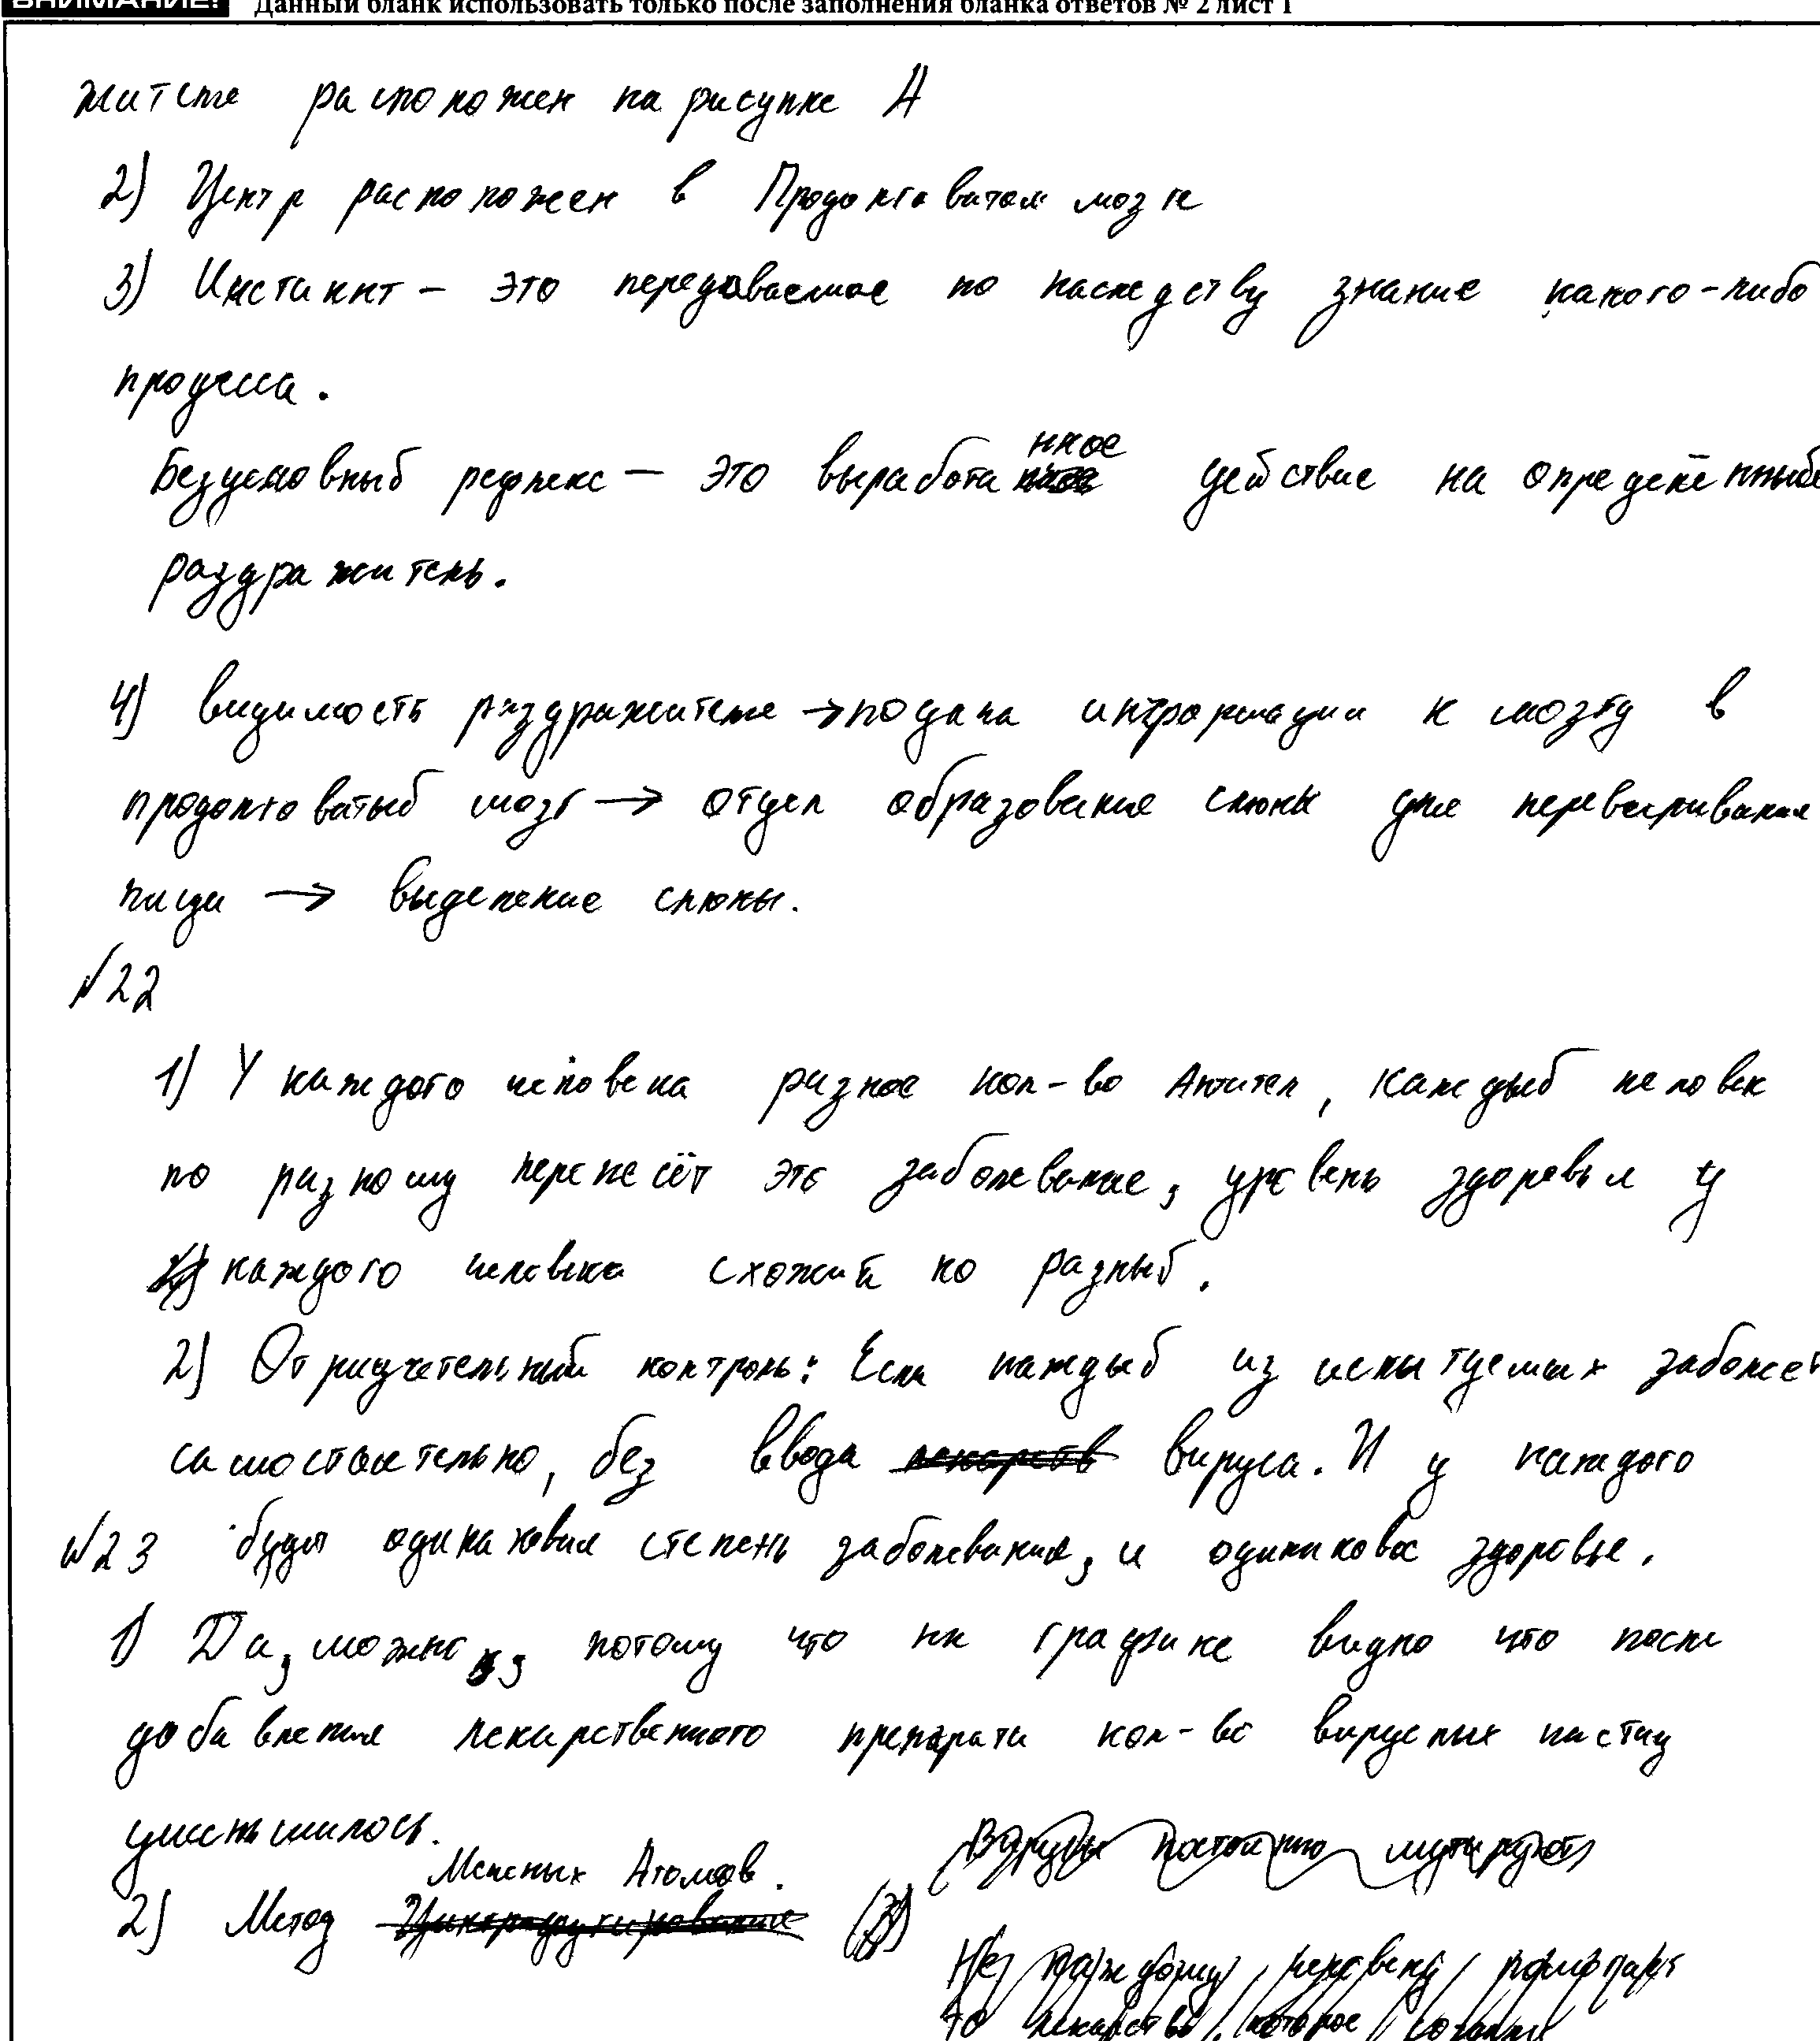 ВНИМАНИЕ! Данный бланк использовать только после заполнения бланка ответов № 2 лист 1
жителе расположен на рисунке А
2) Центр расположен в Продолговатом мозге
3) Инстинкт – это передоваемое по наследству знание какого-либо
процесса.
Безусловный рефлекс – это выработанное действие на определённый
раздражитель.
4) видимость раздражителе → подача информации к мозгу в
продолговатый мозг → отдел образование слюны для переваривания
пищи → выделение слюны.
№22
1) У каждого человека разное кол-во Антител, каждый человек
по разному перенесёт это заболевание, уровень здоровья у
каждого человека схожий но разный.
2) Отрицательный контроль: Если каждый из испытуемых заболеет
самостоятельно, без ввода лекарств вируса. И у каждого
№23 будет одинаковая степень заболевания, и одинаковое здоровье.
1) Да, можно, потому что на графике видно что после
добавления лекарственного препарата кол-во вирусных частиц
уменьшилось.
Меченых Атомов.
2) Метод Центрифугирование (3)
Вирусы постоянно мутируют
Не каждому человеку помогает
то лекарство, которое